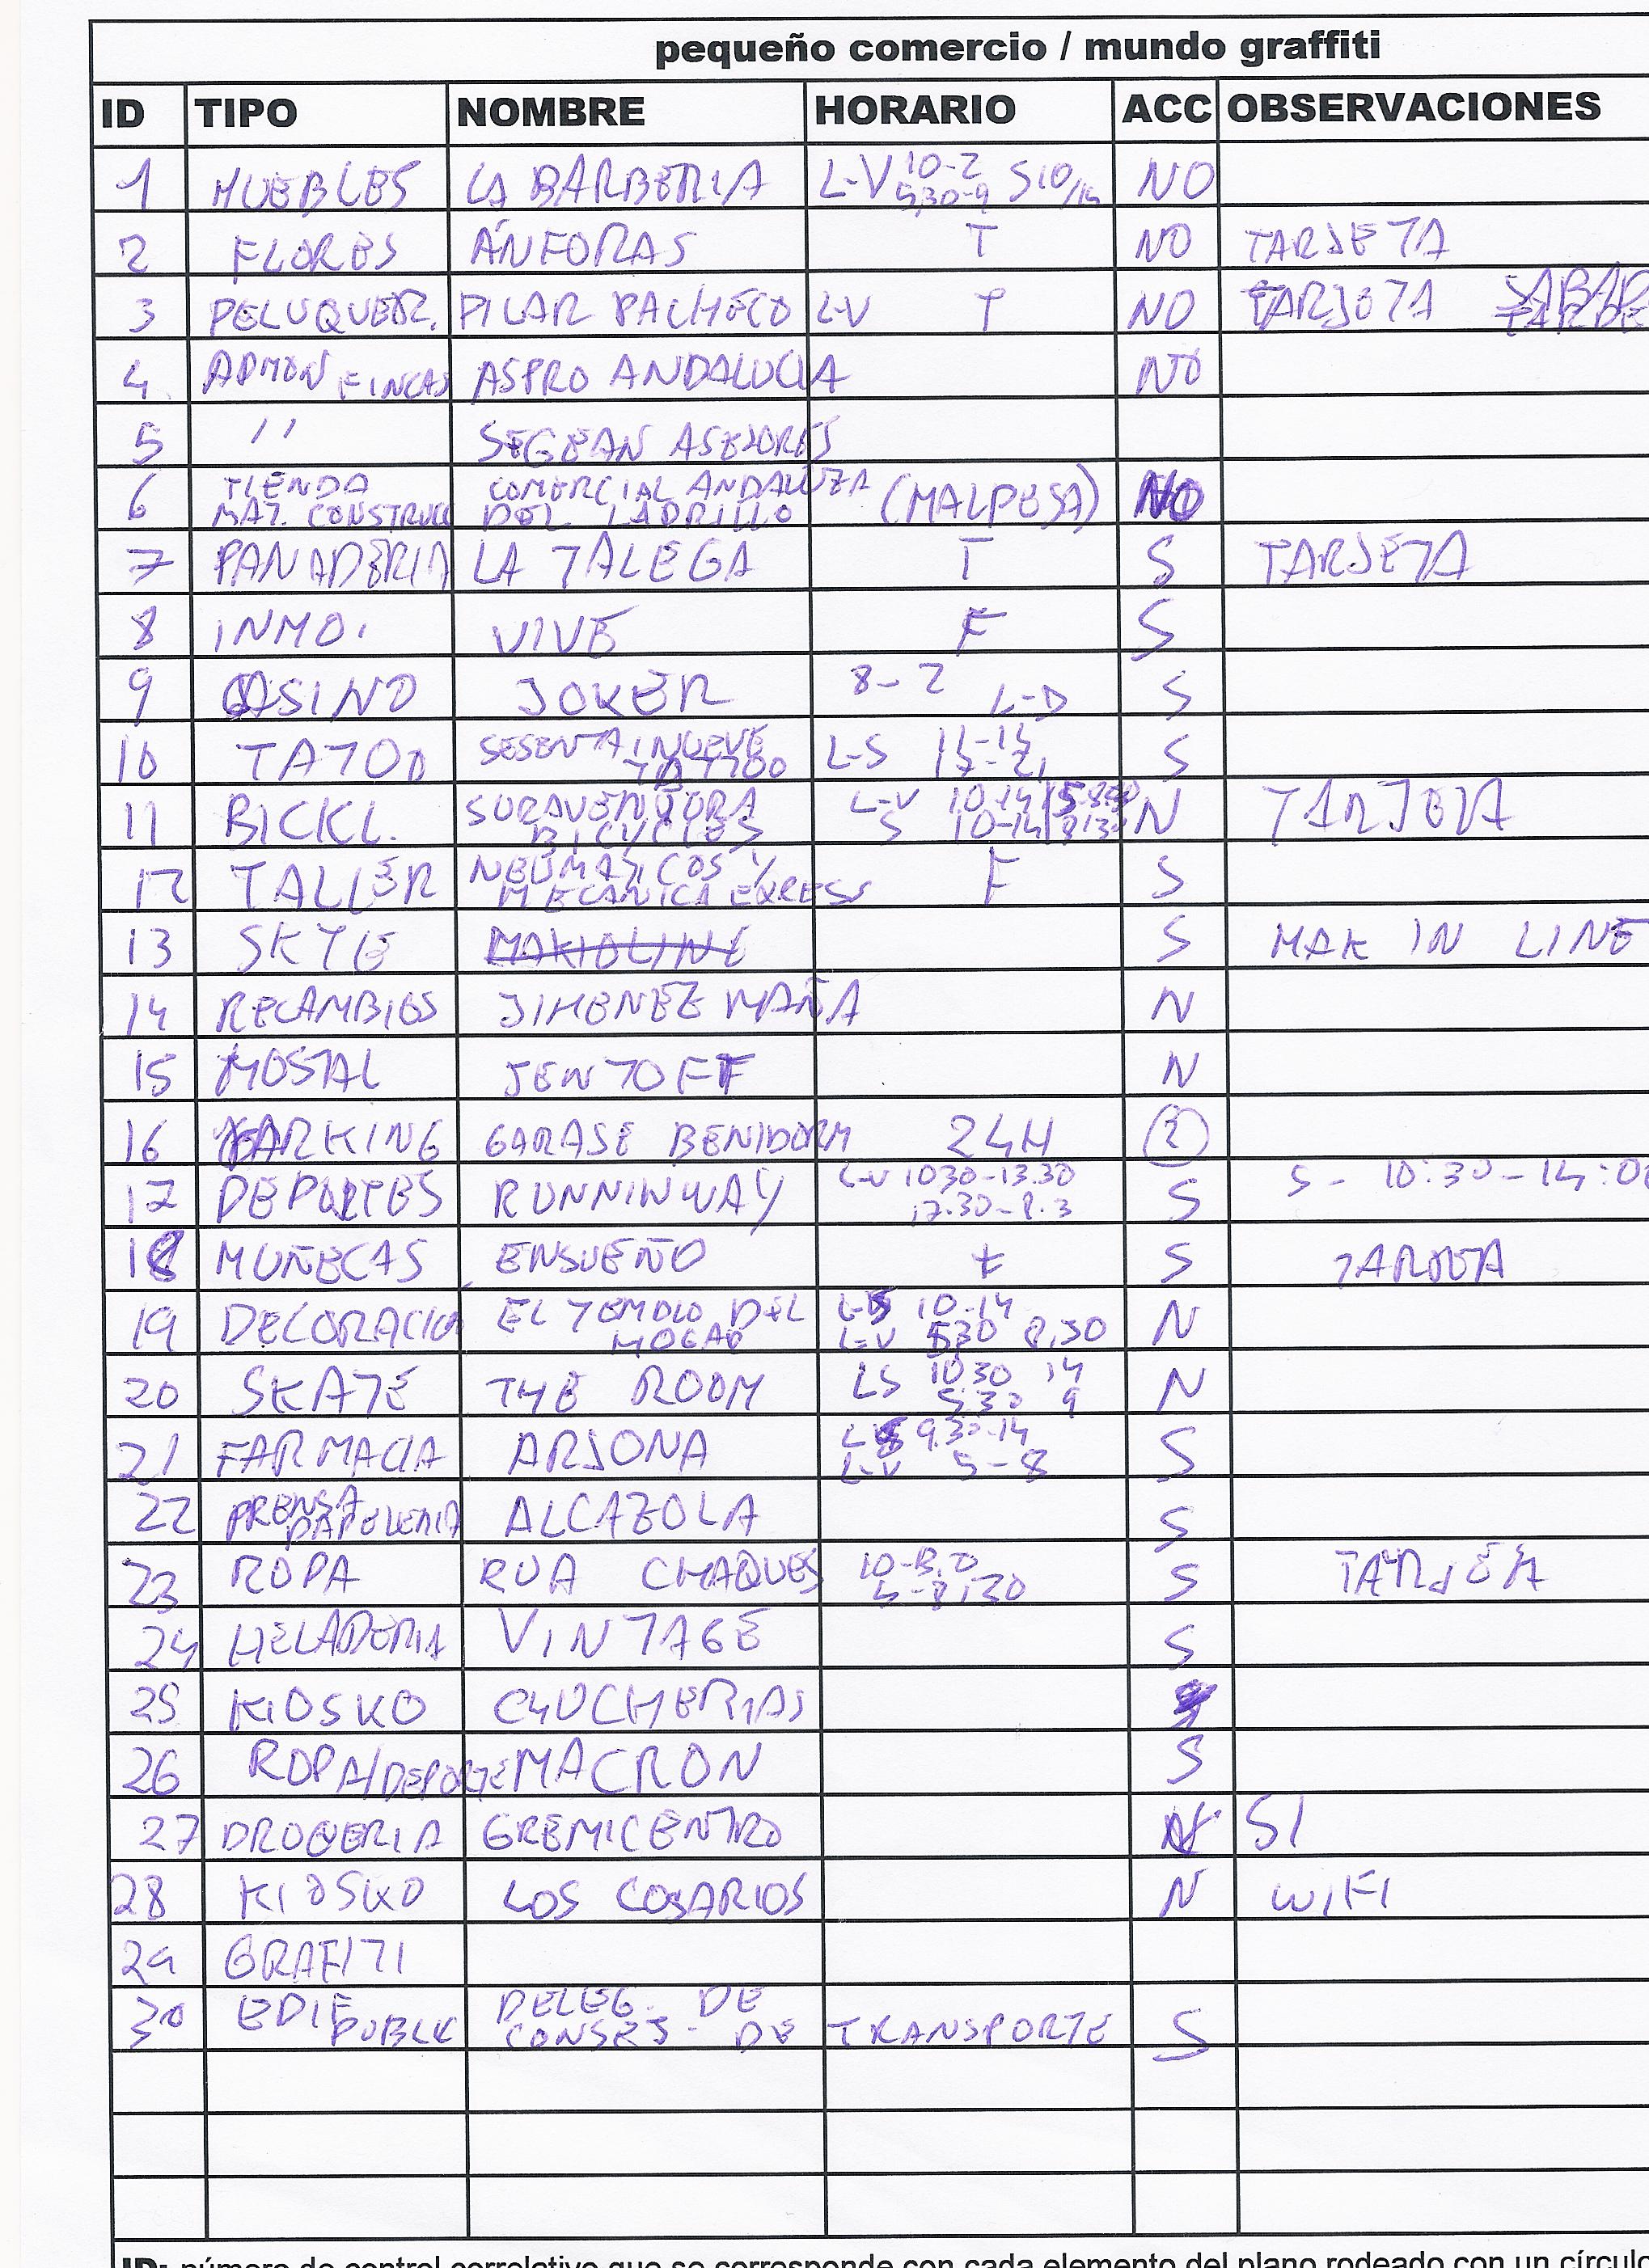 pequeño comercio / mundo graffiti
ID TIPO NOMBRE HORARIO ACC OBSERVACIONES
1 MUEBLES LA BARBERIA L-V 10-2 5,30-9 S10/14 NO
2 FLORES ÁNFORAS T NO TARJETA
3 PELUQUER. PILAR PACHECO L-V T NO TARJETA
4 ADMON FINCAS ASPRO ANDALUCIA NO
5 // SEGEAN ASESORES
6 TIENDA MAT. CONSTRUCC COMERCIAL ANDALUZA DEL LADRILLO (MALPESA) NO
7 PANADERIA LA TALEGA T S TARJETA
8 INMO. VIVE F S
9 CASINO JOKER 8-2 L-D S
10 TATOO SESENTAINUEVE TATTOO L-S S
11 BICICL. SURAVENTURA BICYCLES L-V 10-14 S 10-14 N TARJETA
12 TALLER NEUMATICOS Y MECANICA EXPRESS F S
13 SKTE MAKIOLINE S MAK IN LINE
14 RECAMBIOS JIMENEZ MAÑA N
15 HOSTAL JENTOFT N
16 PARKING GARAJE BENIDORM 24H ?
17 DEPORTES RUNNINWAY L-V 1030-13.30 17.30-8.3 S S - 10:30-14:00
18 MUÑECAS ENSUEÑO t S TARJETA
19 DECORACION EL TEMPLO DEL HOGAR L-S 10-14 L-V 530 8,30 N
20 SKATE THE ROOM LS 1030 14 530 9 N
21 FARMACIA ARJONA L-S 9.30-14 L-V 5-8 S
22 PRENSA PAPELERIA ALCAZOLA S
23 ROPA RUA CHAQUES S TARJETA
24 HELADERIA VINTAGE S
25 KIOSKO CHUCHERIAS S
26 ROPA/DEPORTE MACRON S
27 DROGERIA GREMICENTRO SI
28 KIOSKO LOS COSARIOS N WIFI
29 GRAFITI
30 EDIF PUBLIC DELEG. DE CONSEJ. DE TRANSPORTE S
ID: número de control correlativo que se corresponde con cada elemento del plano rodeado con un círculo